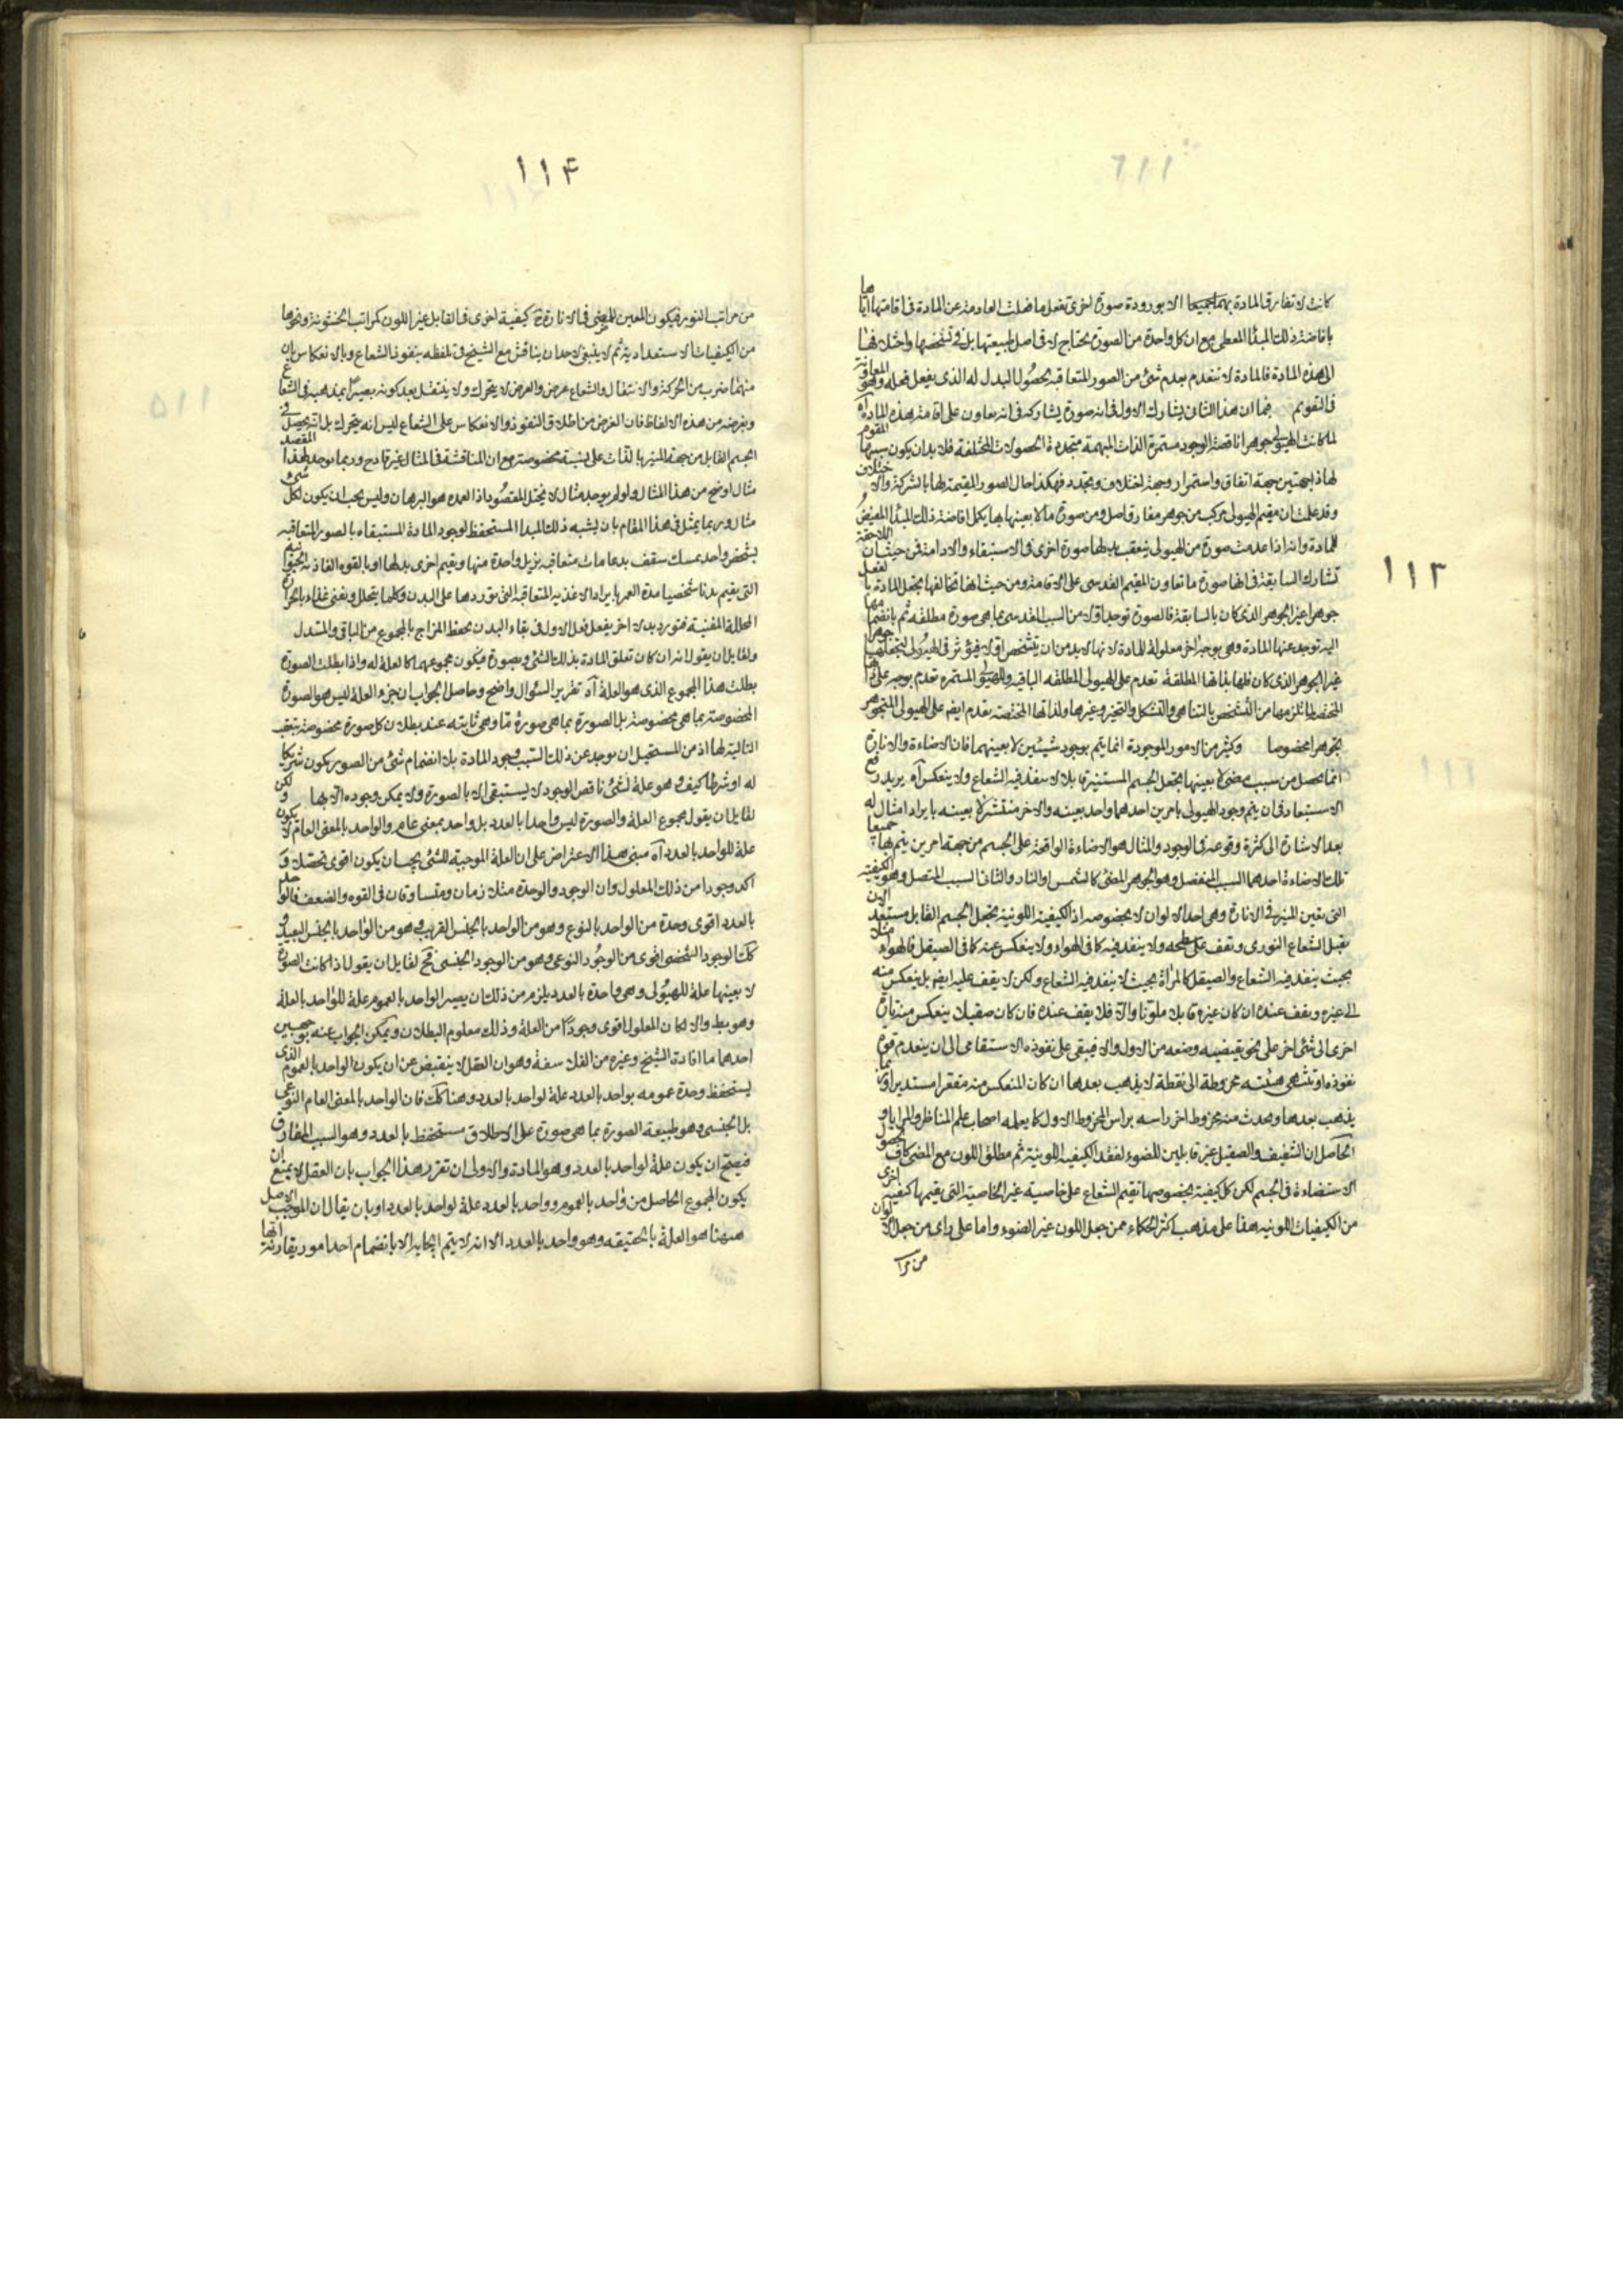 ١١٣
كانت لا تفارق المادة بهما جميعا الا بورودة صورة اخرى تفعل ما فعلت العادمة عن المادة فى اقامتها اياها
بافاضة ذلك المبدأ المعطى مع ان كل واحدة من الصورة يحتاج لا فى اصل طبيعتها بل فى تشخصها واختلافها
الى هذه المادة فالمادة لا تنعدم بعدم شئ من الصور المتعاقبة بحصول البدل له الذى يفعل فعله وهو المعاونة
فى التقويم فما ان هذا الثانى يشارك الاول فى انه صورة يشاركه فى انه يعاون على اقامة هذه المادة آه
لما كانت الهيولى جوهرا ناقصة الوجود مستمرة الذات المبهمة متجددة الحصولات المختلفة فلا بد ان يكون سببها المقوم
لها ذا جهتين جهة اتفاق واستمرار وجهة اختلاف وتجدد فهكذا حال الصور المقيمة لها بالشركة والاختلاف
وقد علمت ان مقيم الهيولى مركب من جوهر مفارق اصل ومن صورة ما لا بعينها بها يكمل افاضة ذلك المبدأ المفيض
للمادة وانه اذا عدمت صورة من الهيولى يتعقب بدلها صورة اخرى فى الاستبقاء والادامة فمن حيث ان اللاحقة
تشارك السابقة فى انها صورة ما تعاون المقيم القدسى على الاقامة ومن حيث انها تخالفها يجعل المادة بالفعل
جوهرا غير الجوهر الذى كان بالسابقة فالصورة توجد اولا من السبب القدسى بما هى صورة مطلقه ثم بانضمامها
اليه توجد عنها المادة وهى بوجه آخر معلولة للمادة لانها لا بد من ان يتشخص اولا فيؤثر فى الهيولى لتجعلها جوهرا
غير الجوهر الذى كان فلها بذاتها المطلقة تقدم على الهيولى المطلقه الباقيه وللهيولى المستمره تقدم بوجه على ذاتها
المختصة لما تلزمها من التشخص بالتناهى والتشكل والتحيز وغيرها ولذاتها المختصة تقدم ايضم على الهيولى المتجوهر
بجوهرا مخصوصا وكثير من الامور الموجودة انما يتم بوجود شيئين لا بعينهما فان الاضاءة والانارة
انما تحصل من سبب مضئ لا بعينها يجعل الجسم المستنير قابلا لا ينفذ فيه الشعاع ولا ينعكس آه يريد رفع
الاستبعاد فى ان يتم وجود الهيولى بامرين احدهما واحد بعينه والاخر منتشر لا بعينه بايراد امثال له
بعد الاشارة الى كثرة وقوعه فى الوجود والمثال هو الاضاءة الواقعة على الجسم من جهة امرين يتم بهما جميعا
تلك الاضاءة احدهما السبب المنفصل وهو الجوهر المضئ كالشمس او النار والثانى السبب المتصل وهو الكيفية
التى يقين المنير فى الانارة وهى احد الالوان لا بخصوصه اذ الكيفية اللونية يجعل الجسم القابل مستعد لان
يقبل الشعاع النورى ويقف على سطحه ولا ينفذ فيه كما فى الهواء ولا ينعكس عنه كما فى الصيقل فالهواء مثلا
بحيث ينفذ فيه الشعاع والصيقل كالمرآة بحيث لا ينفذ فيه الشعاع ولكن لا يقف عليه ايضم بل ينعكس منه
الى غيره ويقف عنده ان كان غيره قابلا ملونا والا فلا يقف عنده فان كان صقيلا ينعكس منه تارة
اخرى الى شئ اخر على نحو يقتضيه وضعه من الاول والا فيبقى على نفوذه الاستقامى الى ان ينعدم قوة
نفوذه او تنتهى هيئته مخروطة الى نقطة لا يذهب بعدها ان كان المنعكس منه مقعرا مستديرا وربما
يذهب بعدها وحدث منه مخروط اخر راسه براس المخروط الاول كما يعلمه اصحاب علم المناظر والمرايا و
الحاصل ان الشفيف والصقيل غير قابلين للضوء لفقد الكيفيه اللونية ثم مطلق اللون مع المضئ كاف لحصول
الاستضاءة فى الجسم لكن كل كيفية بخصوصها تقيم الشعاع على خاصية غير الخاصية التى يقيمها كيفية اخرى
من الكيفيات اللونيه هذا على مذهب اكثر الحكماء ممن جعل اللون غير الضوء واما على راى من جعل الالوان
من مرا
١١۴
من مراتب النور فيكون المعين للمضئ فى الانارة كيفية اخرى فى القابل غير اللون كمراتب الخشونة ونحوها
من الكيفيات الاستعدادية ثم لا ينبغى لاحد ان يناقش مع الشيخ فى تلفظه بنفوذ الشعاع وبالانعكاس بان
منهما ضرب من الحركة والانتقال والشعاع عرض والعرض لا يتحرك ولا ينتقل بعد كونه بصيرا بمذهبه فى الشعاع
وبغرضه من هذه الالفاظ فان الغرض من اطلاق النفوذ والانعكاس على الشعاع ليس انه يتحرك بل انه يحصل فى
الجسم القابل من جهة المنير بالذات على نسبة مخصوصة مع ان المناقشة فى المثال غير قادح وربما يوجد لهذا المقصد
مثال اوضح من هذا المثال ولو لم يوجد مثال لا يختل المقصود اذ العمدة هو البرهان وليس يجب ان يكون لكل شئ
مثال وربما يمثل فى هذا المقام بان يشبه ذلك المبدا المستحفظ لوجود المادة المستبقاه بالصور المتعاقبه
بشخص واحد يمسك سقف بدعامات متعاقبه يزيل واحدة منها ويقيم اخرى بدلها او بالقوه الغاذية الحيوانية
التى يقيم بدنا شخصيا مدة العمر بايراد الاغذيه المتعاقبة التى توردها على البدن وكلما يتحلل ويفنى غذاء بالحرارة
المحللة المفنية فتورد بدلا اخر يفعل فعل الاول فى بقاء البدن بحفظ المزاج بالمجموع من الباقى والمتبدل
ولقايل ان يقول انه ان كان تعلق المادة بذلك الشئ وبصورة فيكون مجموعهما كالعلة له واذا بطلت الصورة
بطلت هذا المجموع الذى هو العلة آه تقرير السئوال واضح وحاصل الجواب ان جزء العلة ليس هو الصورة
المخصوصة بما هى مخصوصة بل الصورة بما هى صورة ما وهى ثابته عند بطلان كل صورة مخصوصة بتعقب
التالية لها اذ من المستحيل ان يوجد عن ذلك السبب وجود المادة بلا انضمام شئ من الصور يكون شريكا
له او شرطا كيف وهو علة لشئ ناقص الوجود لا يستبقى الا بالصورة ولا يمكن وجوده الا بها ولكن
لقايل ان يقول مجموع العلة والصورة ليس واحدا بالعدد بل واحد بمعنى عام والواحد بالمعنى العام لا يكون
علة للواحد بالعدد آه مبنى هذا الاعتراض على ان العلة الموجبة للشئ يجب ان يكون اقوى تحصلا و
اكد وجودا من ذلك المعلول وان الوجود والوحدة مثلازمان ومتساوقان فى القوه والضعف فالواحد
بالعدد اقوى وحدة من الواحد بالنوع وهو من الواحد بالجنس القريب وهو من الواحد بالجنس البعيد و
كك الوجود الشخصى اقوى من الوجود النوعى وهو من الوجود الجنسى فح لقايل ان يقول اذا كانت الصورة
لا بعينها علة للهيولى وهى واحدة بالعدد يلزم من ذلك ان يصير الواحد بالعموم علة للواحد بالعدد
وهو بط والا لكان المعلول اقوى وجودا من العلة وذلك معلوم البطلان ويمكن الجواب عنه بوجهين
احدهما ما افادة الشيخ وغيره من الفلاسفة وهو ان العقل لا ينقبض عن ان يكون الواحد بالعموم الذى
يستحفظ وحدة عمومه بواحد بالعدد علة لواحد بالعدد وهنا كك فان الواحد بالمعنى العام النوعى
بل الجنسى وهو طبيعة الصورة بما هى صورة على الاطلاق مستحفظ بالعدد وهو السبب المفارق
فيصح ان يكون علة لواحد بالعدد وهو المادة والاولى ان تقرر هذا الجواب بان العقل لا يمنع ان
يكون المجموع الحاصل من واحد بالعموم وواحد بالعدد علة لواحد بالعدد او بان يقال ان الموجب الاصل
ههنا هو العلة بالحقيقه وهو واحد بالعدد الا انه لا يتم ايجابه الا بانضمام احد امور يقارنه ايها